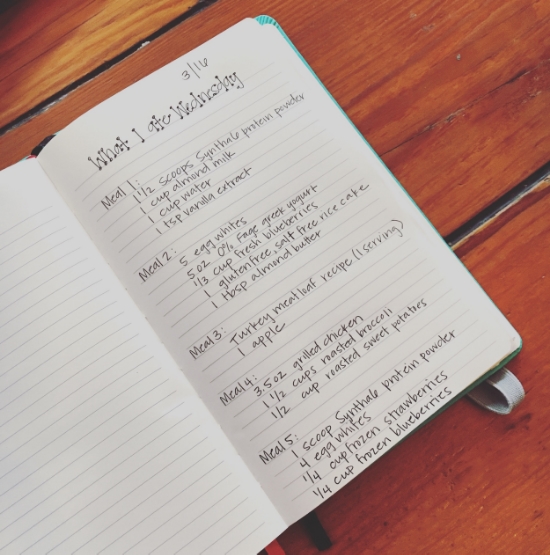 3/16
What I ate Wednesday
Meal 1:
1 1/2 scoops Syntha6 protein powder
1 cup almond milk
1 cup water
1 tsp vanilla extract
Meal 2:
5 egg whites
5oz 0% Fage greek yogurt
1/3 cup fresh blueberries
1 gluten free, salt free rice cake
1 tbsp almond butter
Meal 3:
Turkey meatloaf recipe (1 serving)
1 apple
Meal 4:
3.5oz grilled chicken
1 1/2 cups roasted broccoli
1/2 cup roasted sweet potatoes
Meal 5:
1 scoop Syntha6 protein powder
4 egg whites
1/4 cup frozen strawberries
1/4 cup frozen blueberries